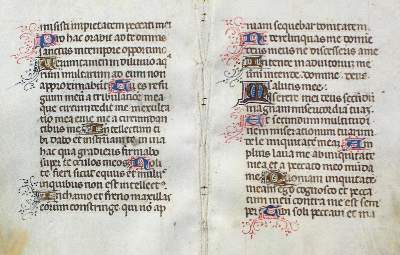 misisti impietatem peccati mei
Pro hac orabit ad te omnis
sanctus in tempore oportuno
Verumtamen in diluvio aq
rum multarum ad eum non
approximabunt Tu es refu
gium meum a tribulatione mea
que circumdedit me exulta
tio mea erue me a circumdan
tibus me Intellectum ti
bi dabo et instruam te in via
hac qua gradieris firmabo
super te oculos meos Noli
te fieri sicut equus et mulus
in quibus non est intellect
In chamo et freno maxillas
eorum constringe qui non ap
niam sequebar bonitatem
Ne derelinquas me domine
deus meus ne discesseris a me
Intende in adiutorium me
um intende domine deus
salutis mee
Miserere mei deus secundum
magnam misericordiam tuam
Et secundum multitudi
nem miserationum tuarum
dele iniquitatem meam Am
plius laua me ab iniquitate
mea et a peccato meo munda
me Quoniam iniquitatem
meam ego cognosco et pecca
tum meum contra me est sem
per Tibi soli peccaui et ma